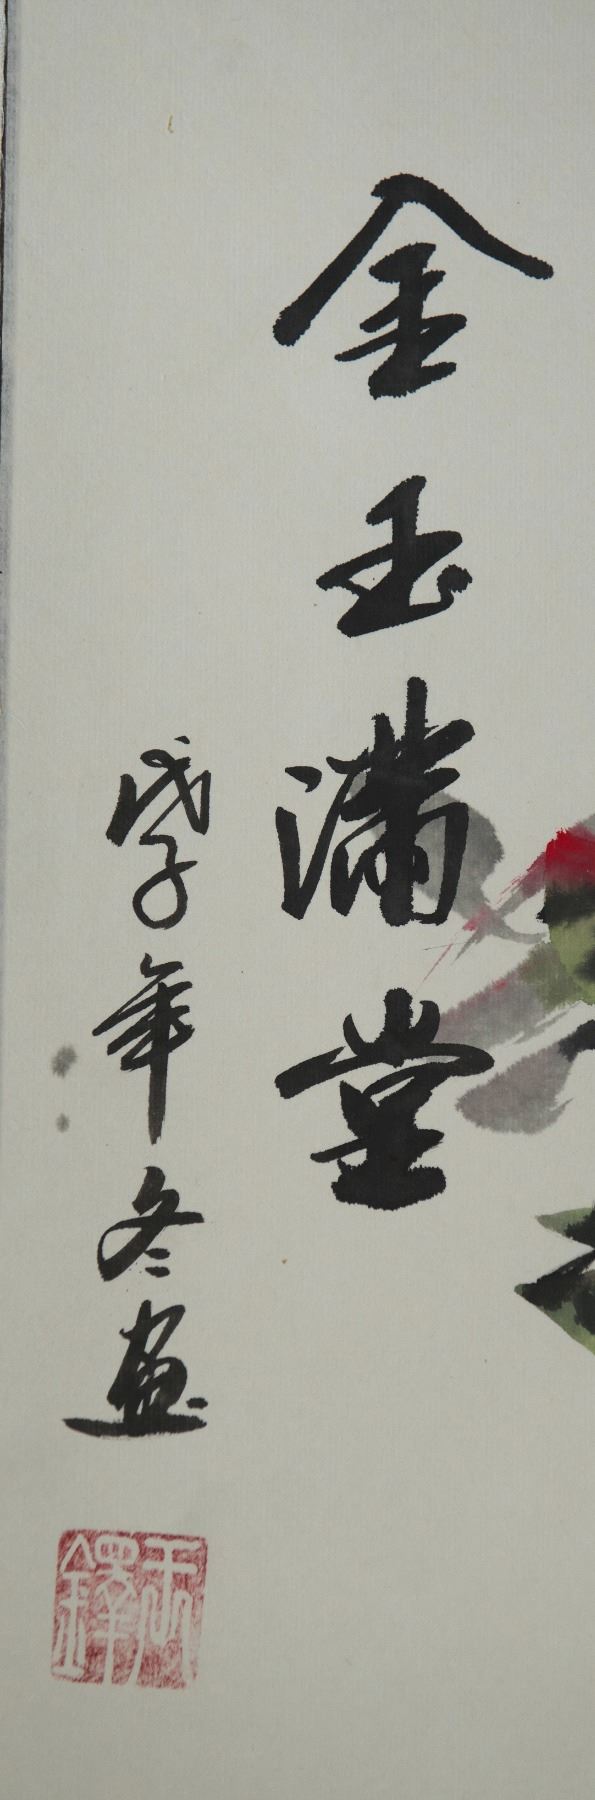 金玉满堂
戊子年冬畫